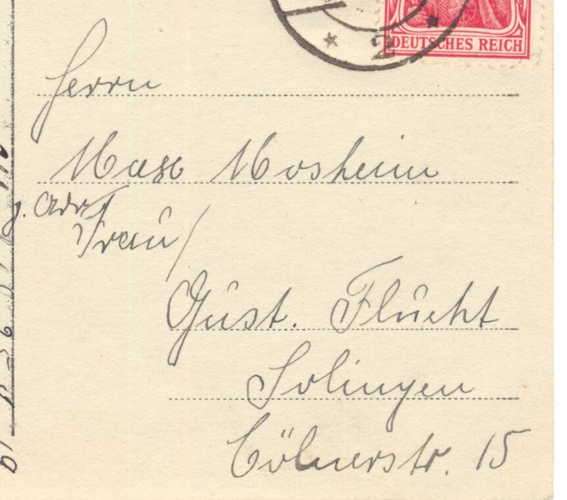 2
DEUTSCHES REICH
Herrn
Max Mosheim
p. Adr.
Frau/
Gust. Flücht
Solingen
Cölnerstr. 15